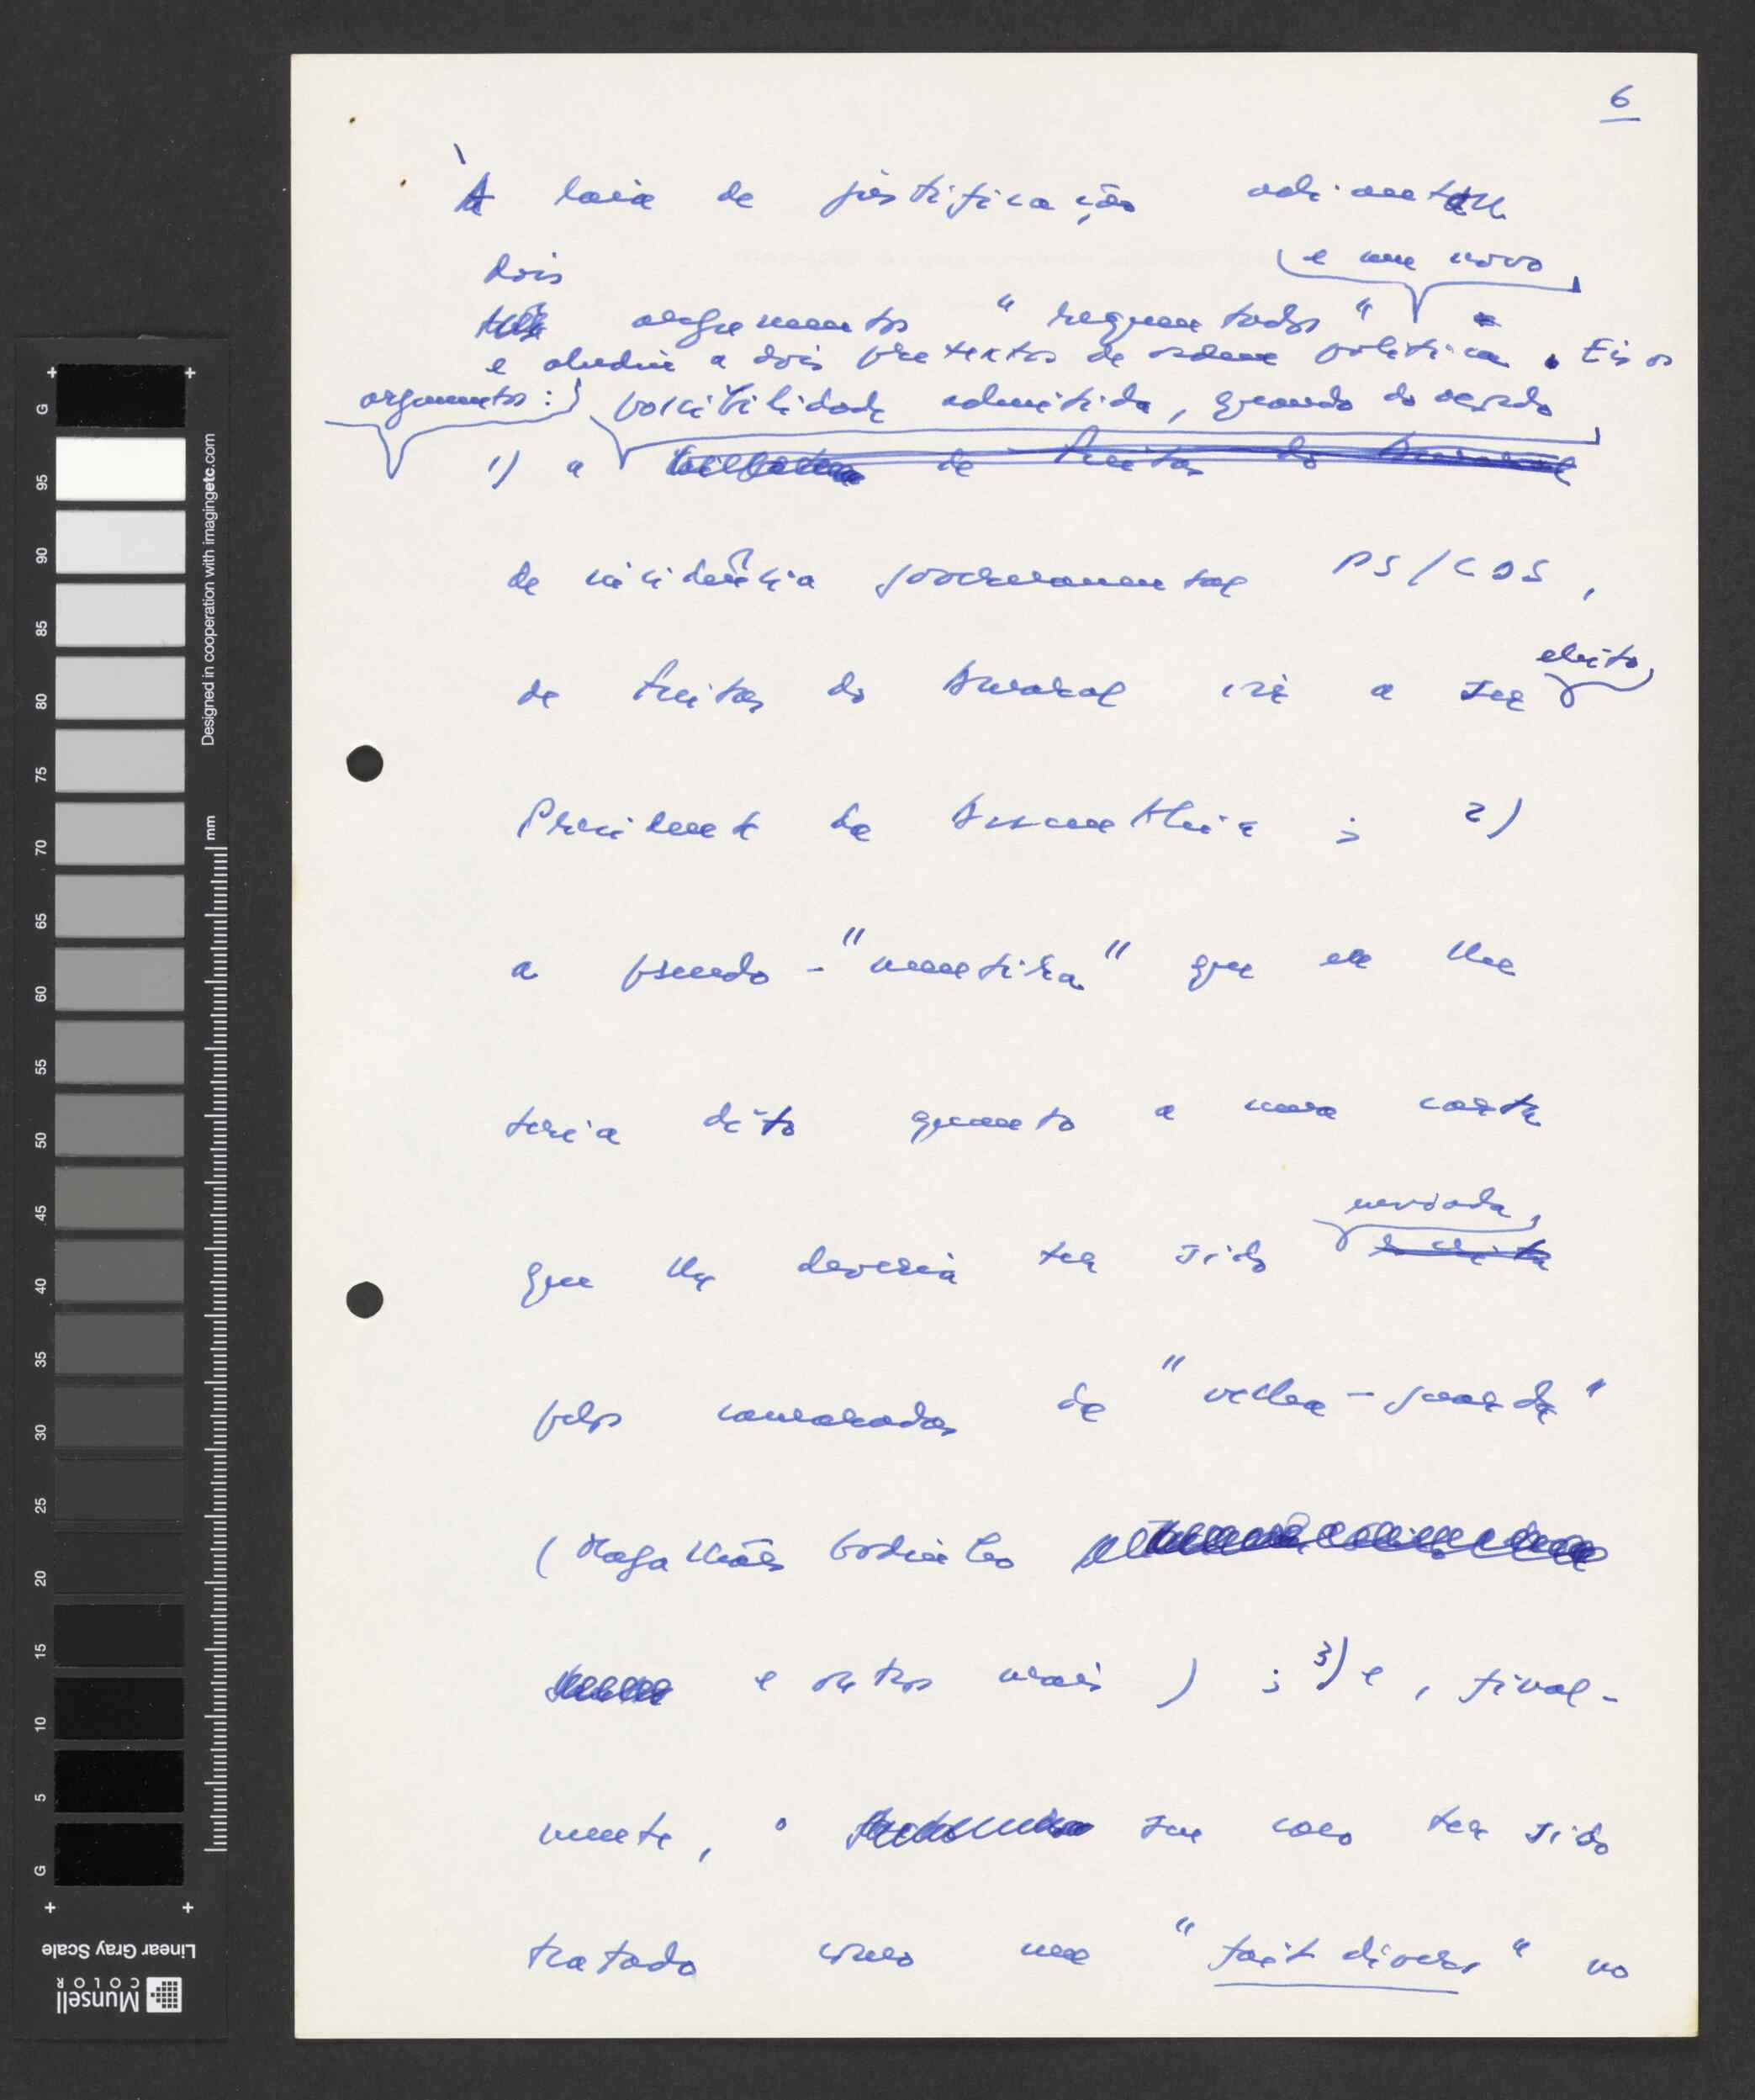 6
À laia de justificação adiantou
dois
três argumentos "requentados" e um novo
e aludiu a dois pretextos de ordem política. Eis os
argumentos: possibilidade admitida, quando do acordo
1) a de Freitas do Amaral
de incidência governamental PS/CDS,
de Freitas do Amaral vir a ser eleito,
Presidente da Assembleia; 2)
a pseudo-"mentira" que eu lhe
teria dito quanto a uma carta
que lhe deveria ter sido enviada,
escrita
pelos camaradas da "velha-guarda"
(Magalhães Godinho
e outros mais); 3) e, final-
mente, o seu caso ter sido
tratado como um "fait divers" no
G 95 90 85 80 75 70 65 60 55 50 45 40 35 30 25 20 15 10 5 G
Designed in cooperation with imagingetc.com
mm
Linear Gray Scale
Munsell
COLOR